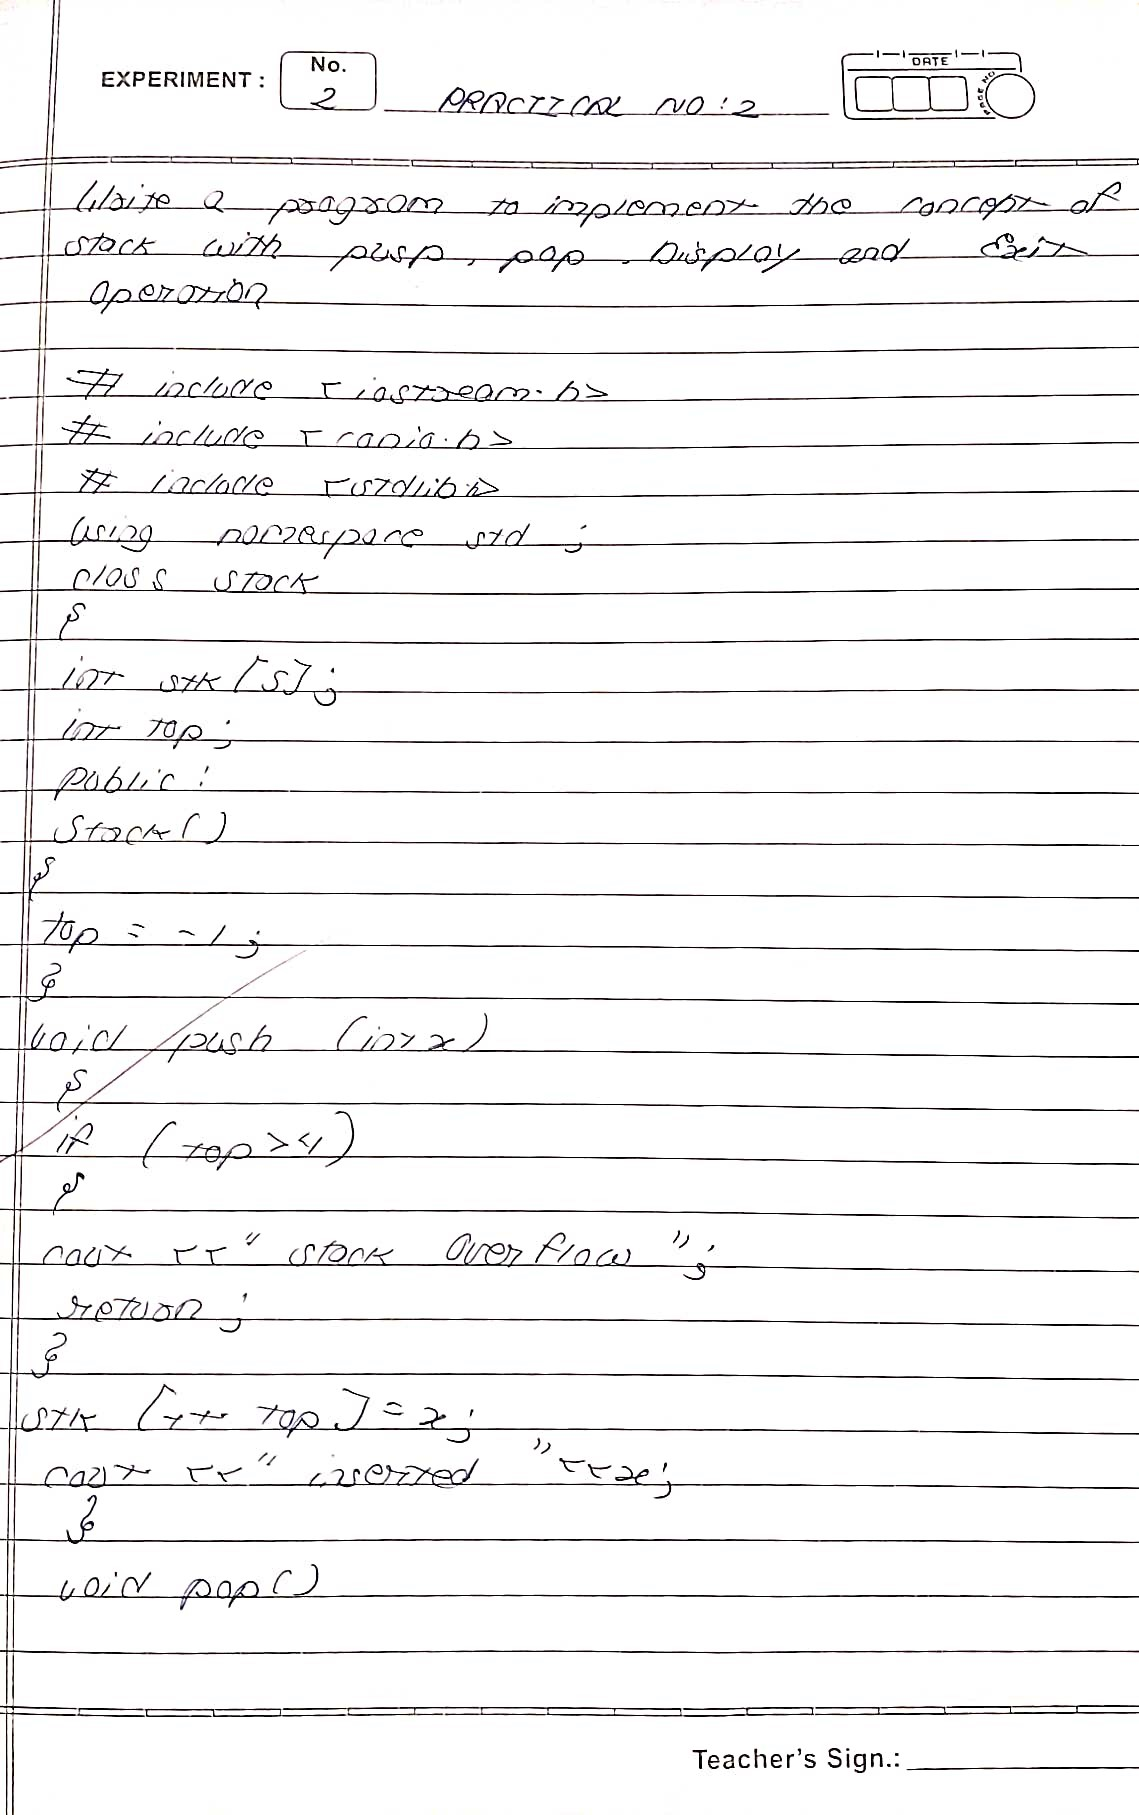 EXPERIMENT :
No.
2
PRACTICAL NO : 2
DATE
PAGE NO
Write a program to implement the concept of
stack with pusp, pop . Display and Exit
operation
# include <iostream.h>
# include <conio.h>
# include <stdlib.h>
using namespace std ;
class stack
{
int stk [5] ;
int top ;
public :
Stack ( )
{
top = -1 ;
}
void push (int x)
{
if (top > 4)
{
cout << " stack over flow " ;
return ;
}
stk [++ top] = x ;
cout << " inserted " << x ;
}
void pop ( )
Teacher's Sign.: